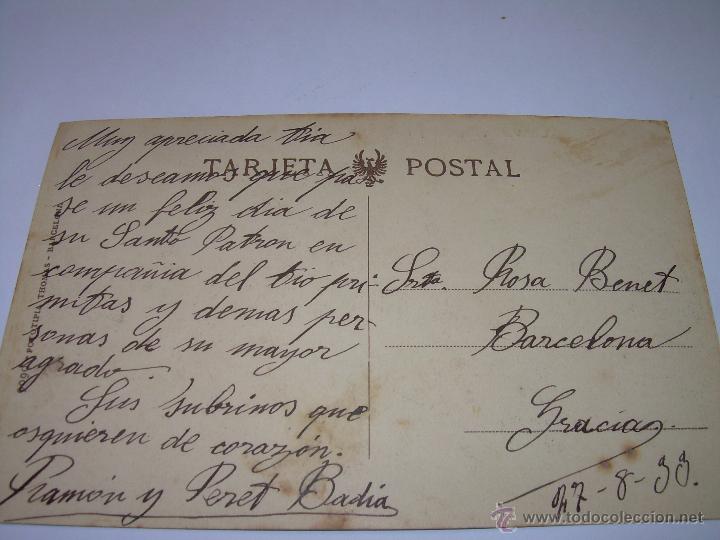 Muy apreciada tia
TARJETA POSTAL
le deseamos que pa-
se un feliz dia de
su Santo Patron en
compañia del tio pri-
mitas y demas per-
sonas de su mayor
agrado.
Sus subrinos que
osquieren de corazón.
Ramón y Peret Badia
Srta. Rosa Benet
Barcelona
Gracia
27-8-33.
THOMAS - BARCELONA
www.todocoleccion.net